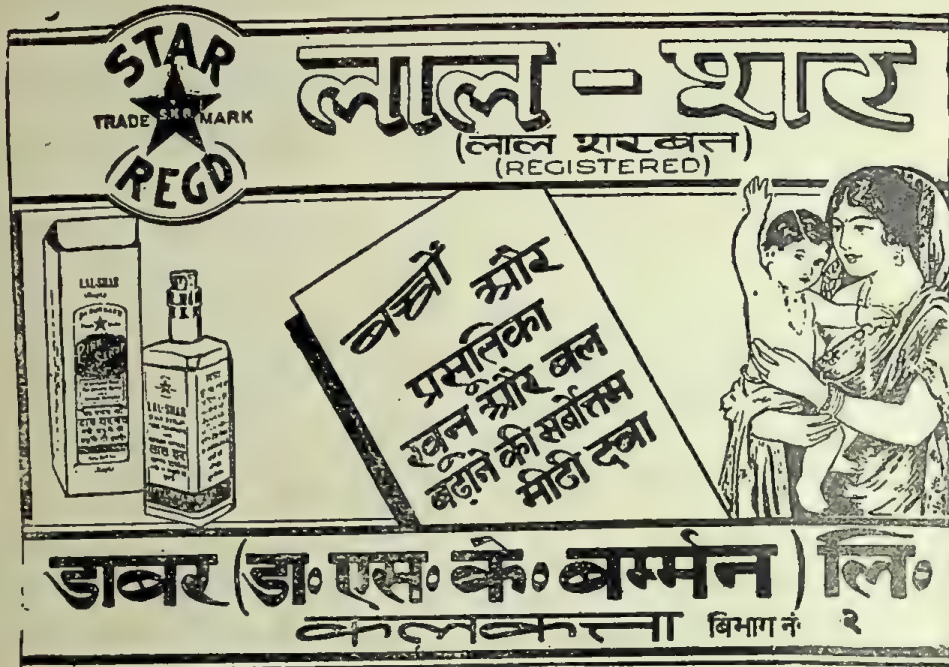 STAR
TRADE MARK
REGD
लाल - शर
(लाल शरबत)
(REGISTERED)
LAL-SHAR
LAL-SHAR
बच्चों और
प्रसूतिका
खून और बल
बढ़ाने की सर्बोत्तम
मीठी दवा
डाबर (डा॰ एस॰ के॰ बर्म्मन) लि॰
कलकत्ता बिभाग नं॰ २